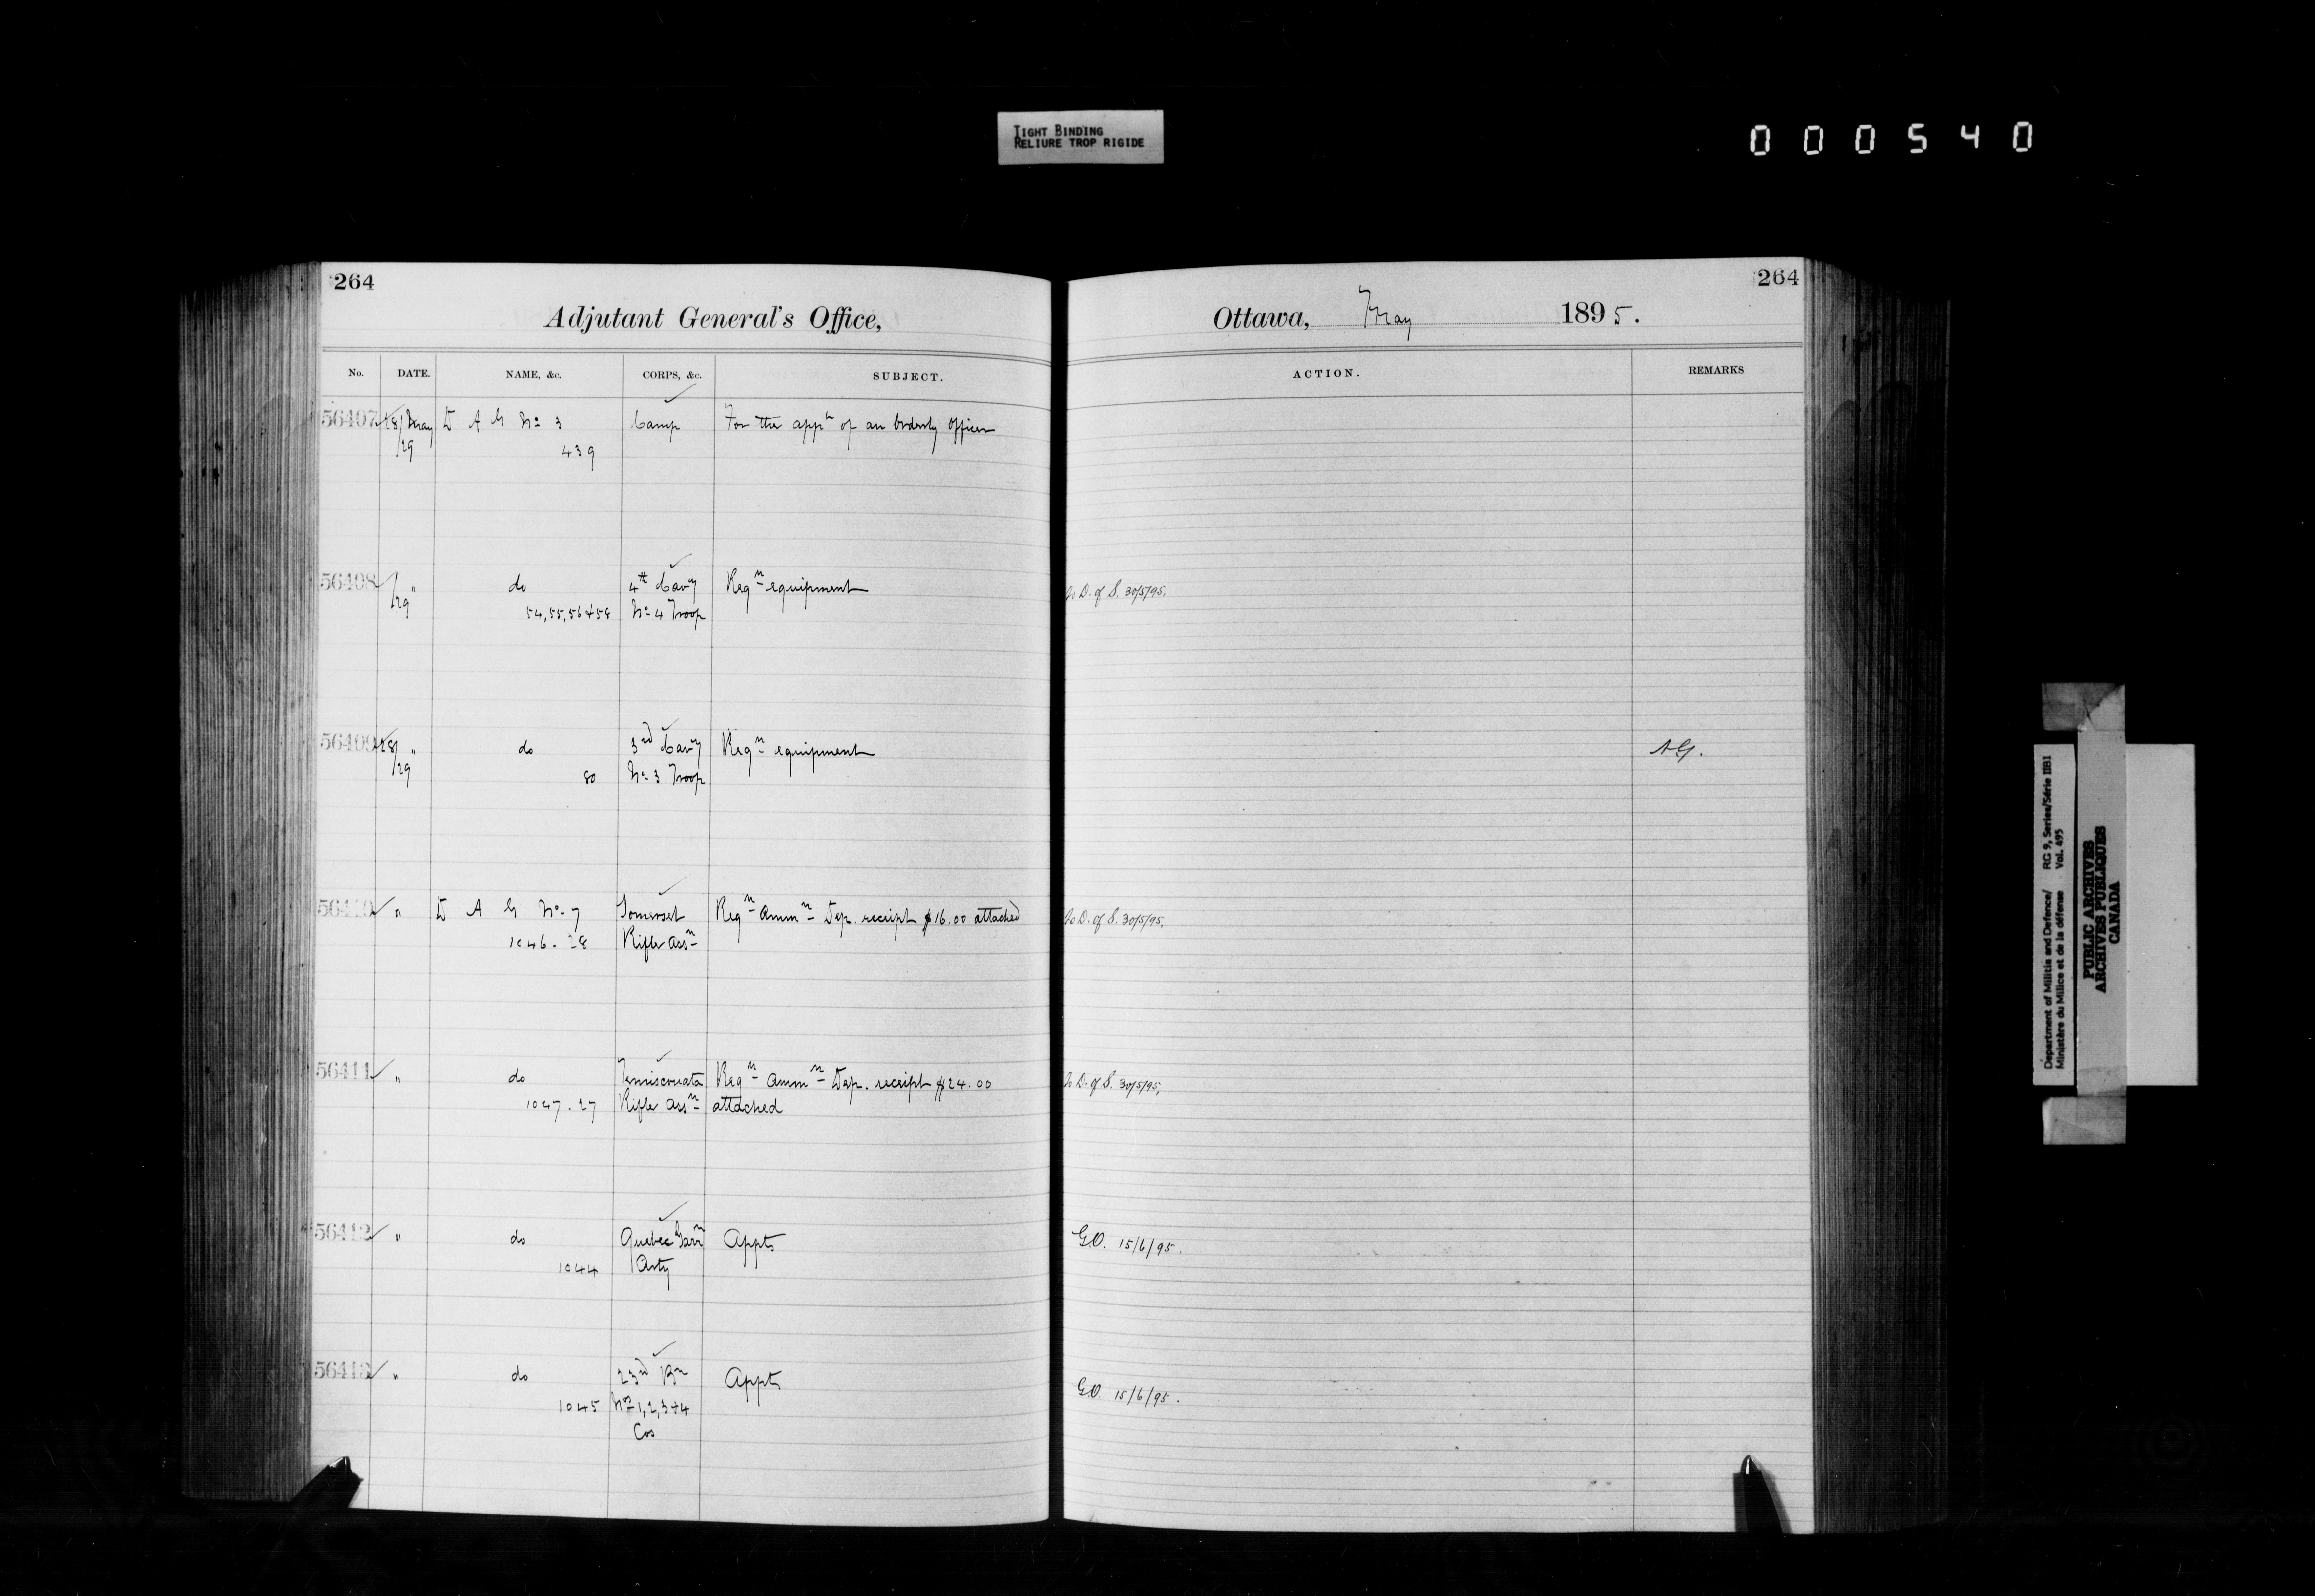 TIGHT BINDING
RELIURE TROP RIGIDE
000540
264
Adjutant General's Office,
No. DATE. NAME, &c. CORPS, &c. SUBJECT.
56407 28/May D A G No 3 Camp For the appt of an Orderly Officer
/29 439
56408 " do 4th Cavy Reqn equipment
/29 54, 55, 56 + 58 No 4 Troop
56409 28/ " do 3rd Cavy Reqn equipment
/29 80 No 3 Troop
56410 " D A G No 7 Somerset Reqn Ammn Dep. receipt $16.00 attached
1046. 28 Rifle Assn
56411 " do Temiscouata Reqn Ammn Dep. receipt $24.00
1047. 27 Rifle Assn attached
56412 " do Quebec Garn Appts
1044 Arty
56413 " do 23rd Bn Appts
1045 Nos 1, 2, 3 + 4
Cos
264
Ottawa, May 1895.
ACTION. REMARKS
To D. of S. 30/5/95.
A G.
To D. of S. 30/5/95.
To D. of S. 30/5/95.
G.O. 15/6/95.
G.O. 15/6/95.
Department of Militia and Defence/ RG 9, Series/Série IIB1
Ministère du Milice et de la défense Vol. 495
PUBLIC ARCHIVES
ARCHIVES PUBLIQUES
CANADA